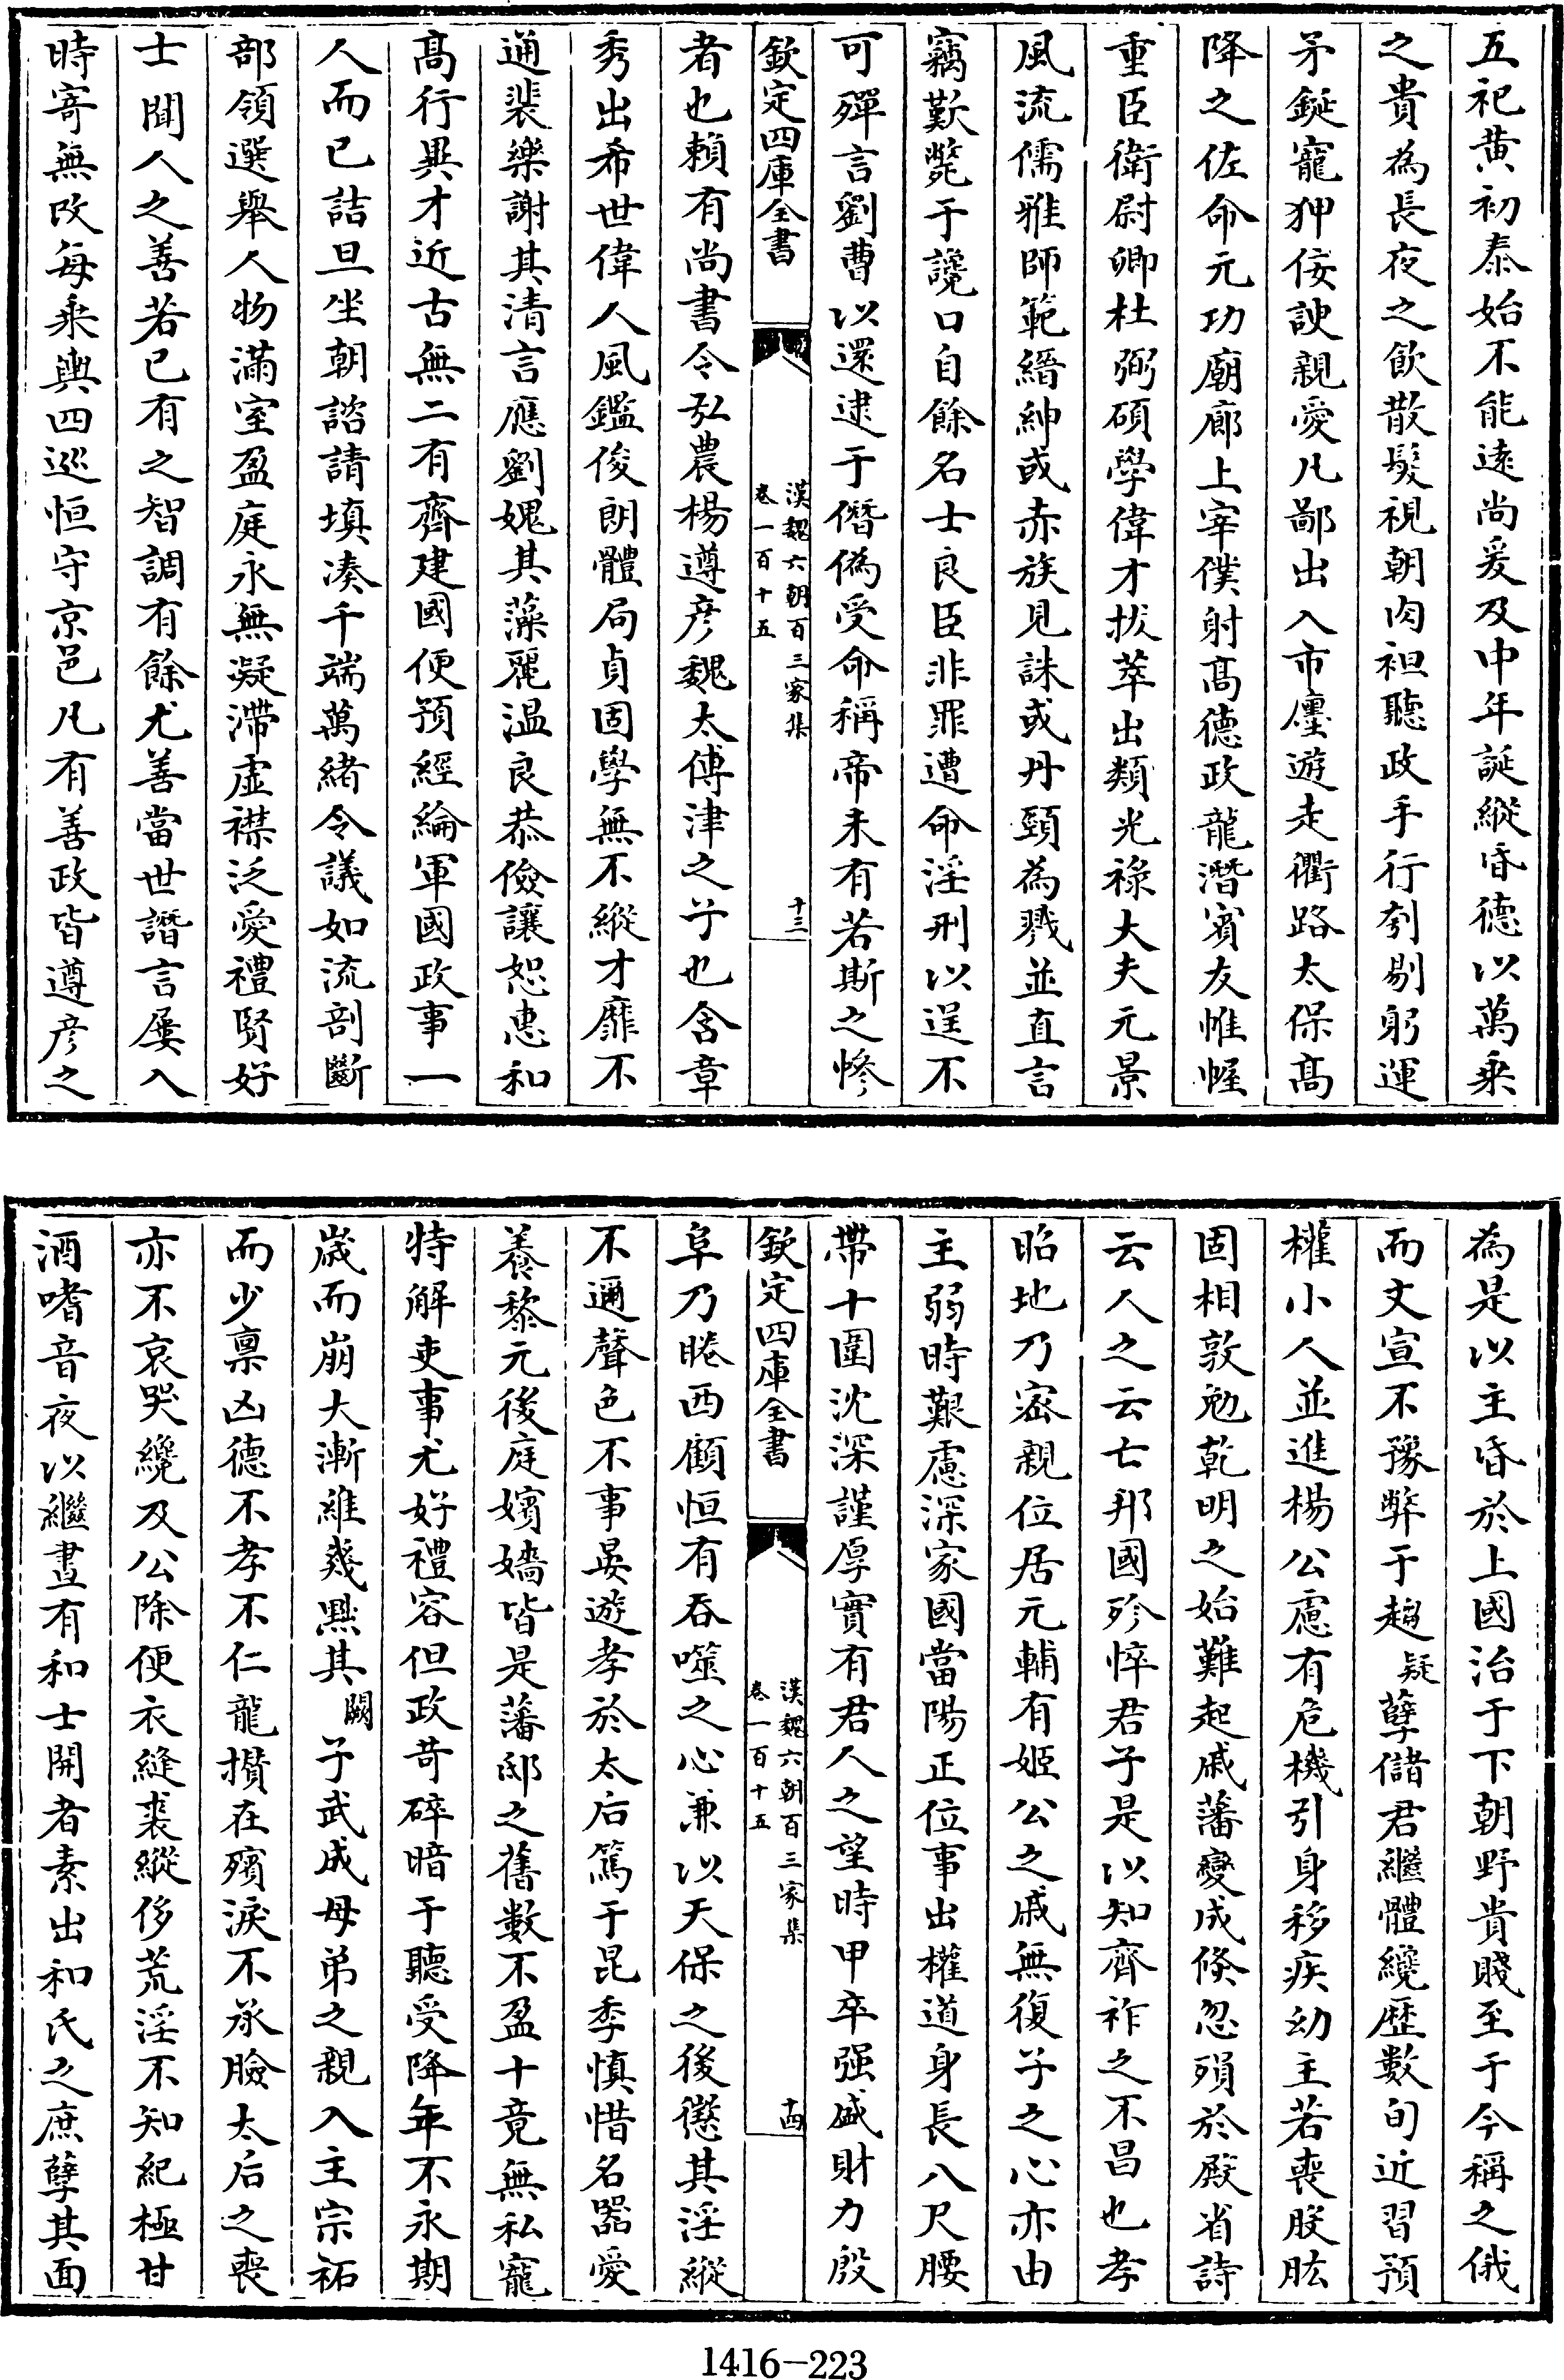 五祀黄初泰始不能逺尚爰及中年誕縱昏德以萬乗
之貴為長夜之飲散髮視朝肉袒聽政手行刳剔躬運
矛鋋寵狎佞諛親愛凡鄙出入市廛遊走衢路太保髙
降之佐命元功廟廊上宰僕射髙德政龍潛賔友帷幄
重臣衛尉卿杜弼碩學偉才拔萃出類光祿大夫元景
風流儒雅師範縉紳或赤族見誅或丹頸為戮並直言
竊歎斃于讒口自餘名士良臣非罪遭命淫刑以逞不
可殫言劉曹以還逮于僭偽受命稱帝未有若斯之慘
欽定四庫全書
漢魏六朝百三家集
卷一百十五
十三
者也賴有尚書令弘農楊遵彦魏太傅津之兮也含章
秀出希世偉人風鑑俊朗體局貞固學無不縱才靡不
通裴樂謝其清言應劉媿其藻麗温良恭儉讓恕恵和
髙行異才近古無二有齊建國便預經綸軍國政事一
人而已詰旦坐朝諮請填凑千端萬緒令議如流剖斷
部領選舉人物滿室盈庭永無凝滯虚襟泛愛禮賢好
士聞人之善若已有之智調有餘尤善當世譖言屢入
時寄無改每乗輿四巡恒守京邑凡有善政皆遵彦之
為是以主昏於上國治于下朝野貴賤至于今稱之俄
而文宣不豫弊于趨疑孽儲君繼體纔歴數旬近習預
權小人並進楊公慮有危機引身移疾幼主若喪股肱
固相敦勉乾明之始難起戚藩變成倐忽殞於殿省詩
云人之云亡邦國殄悴君子是以知齊祚之不昌也孝
昭地乃宻親位居元輔有姬公之戚無復子之心亦由
主弱時艱慮深家國當陽正位事出權道身長八尺腰
帶十圍沈深謹厚實有君人之望時甲卒强盛財力殷
欽定四庫全書
漢魏六朝百三家集
卷一百十五
十四
阜乃睠西顧恒有吞噬之心兼以天保之後懲其淫縱
不邇聲色不事晏遊孝於太后篤于昆季慎惜名器愛
養黎元後庭嬪嬙皆是藩邸之舊數不盈十竟無私寵
特解吏事尤好禮容但政苛碎暗于聽受降年不永期
歲而崩大漸維幾㸃其闕子武成母弟之親入主宗祏
而少禀凶德不孝不仁龍攢在殯淚不承臉太后之喪
亦不哀哭纔及公除便衣縫裘縱侈荒淫不知紀極甘
酒嗜音夜以繼晝有和士開者素出和氏之庶孽其面
1416—223